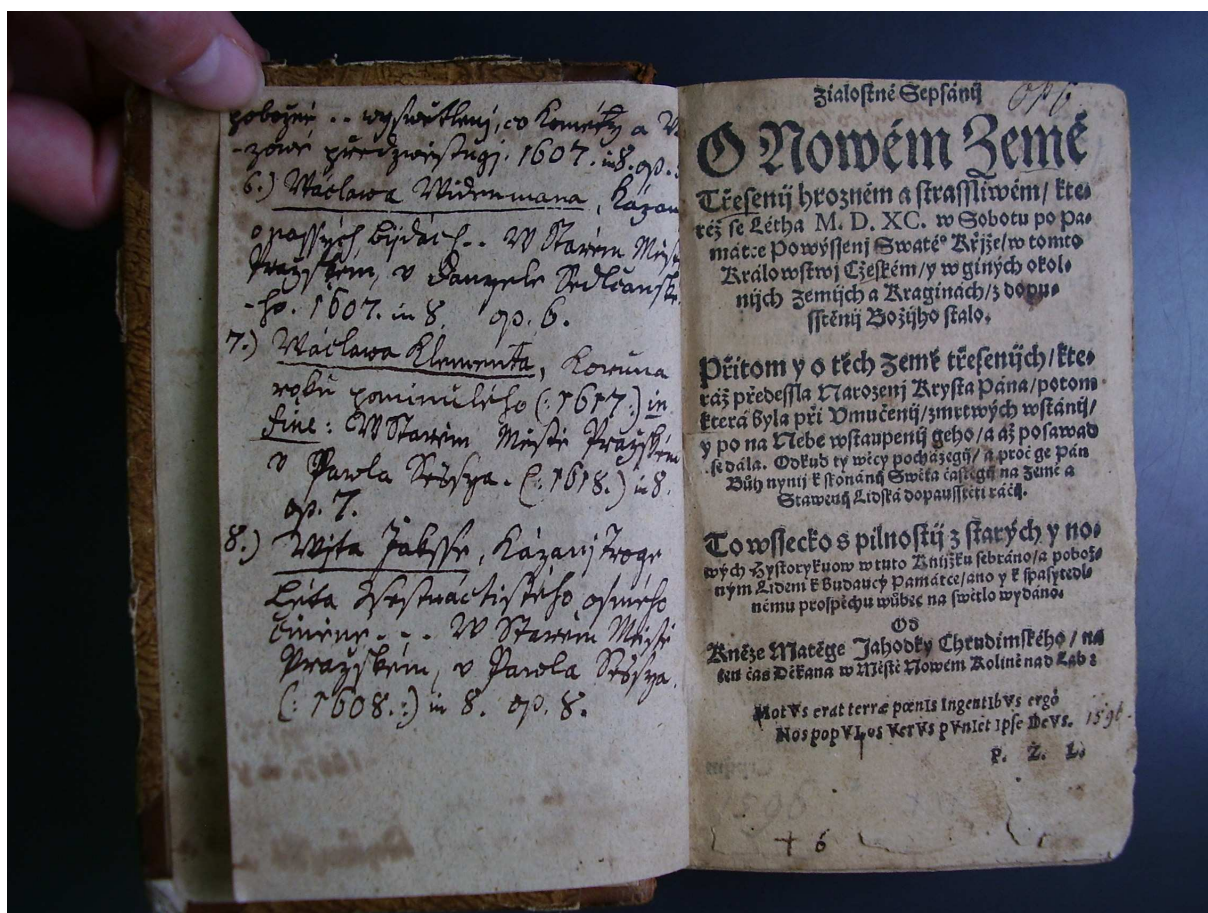 pobožné .. wyswětlenj, co Kométy a
-zowé předzwěstugj. 1607. in 8. op.
6.) Wáclawa Widenmana, Kázan
o nassých bjdách.. W Starém Měst
Pražském, v Danyele Sedlčansk
-ho. 1607. in 8 op. 6.
7.) Wáclawa Klementa, Koruna
roku pominulého (: 1617 :) in
fine: W Starém Městě Pražském
v Pawla Sessya. (: 1618.) in 8.
op. 7.
8.) Wjta Jakssye, Kázanj Troge
Léta Ssestnáctistého osmého
činěné... W Starém Městě
Pražském, v Pawla Sessya.
(: 1608. :) in 8. op. 8.
Žialostné Sepsánij
O Nowém Země
Třesenij hrozném a strassliwém/ kte⸗
réž se Létha M. D. XC. w Sobotu po Pa⸗
mátce Powýssenj Swaté° Křjže/ w tomto
Králowstwj Cžeském/ y w giných okol⸗
nijch Zemijch a Kraginách/ z dopu⸗
sstěnij Božijho stalo.
Přitom y o těch Země třesenijch/ kte⸗
ráž předessla Narozenj Krysta Pána/ potom
která byla při Vmučenij/ zmrtwých wstánij/
y po na Nebe wstaupenij geho/ a až posawad
se dála. Odkud ty wěcy pocházegij/ a proč ge Pán
Bůh nynij k skonánij Swěta častěgij na Země a
Stawenij Lidská dopausstěti ráčij.
To wssecko s pilnostij z starých y no⸗
wých Hystorykuow w tuto Knijžku sebráno/ a pobož⸗
ným Lidem k Budaucý Památce/ ano y k spasytedl⸗
nému prospěchu wůbec na swětlo wydáno.
Od
Kněze Matěge Jahodky Chrudimského/ na
ten čas Děkana w Městě Nowém Kolině nad Lab:
Mot Vs erat terræ pœnIs IngentIbVs ergò
Nos popVLos VerVs pVnIet Ipse DeVs. 1596
P. Z. L.
1596
+ 6